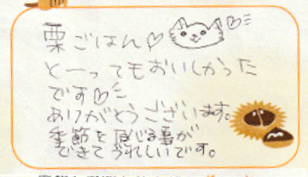 栗ごはん♡
とーってもおいしかった
です♡
ありがとうございます。
季節を感じる事が
できてうれしいです。